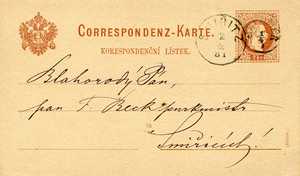 CORRESPONDENZ-KARTE.
KORESPONDENČNÍ LÍSTEK.
Blahorodý Pan,
pan F. Beck purkmistr
Smiřicích!